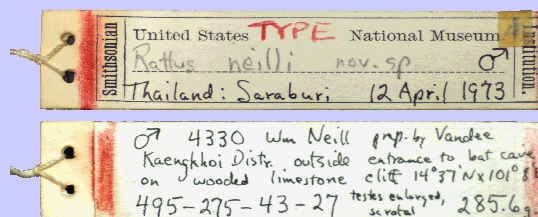 Smithsonian
United States TYPE National Museum
Institution.
Rattus neilli nov. sp. ♂
Thailand: Saraburi 12 April 1973
♂ 4330 Wm Neill prep. by Vandee
Kaengkhoi Distr. outside entrance to bat cave,
on wooded limestone cliff 14°37'N x 101°8'E
495-275-43-27 testes enlarged, scrotal 285.6g